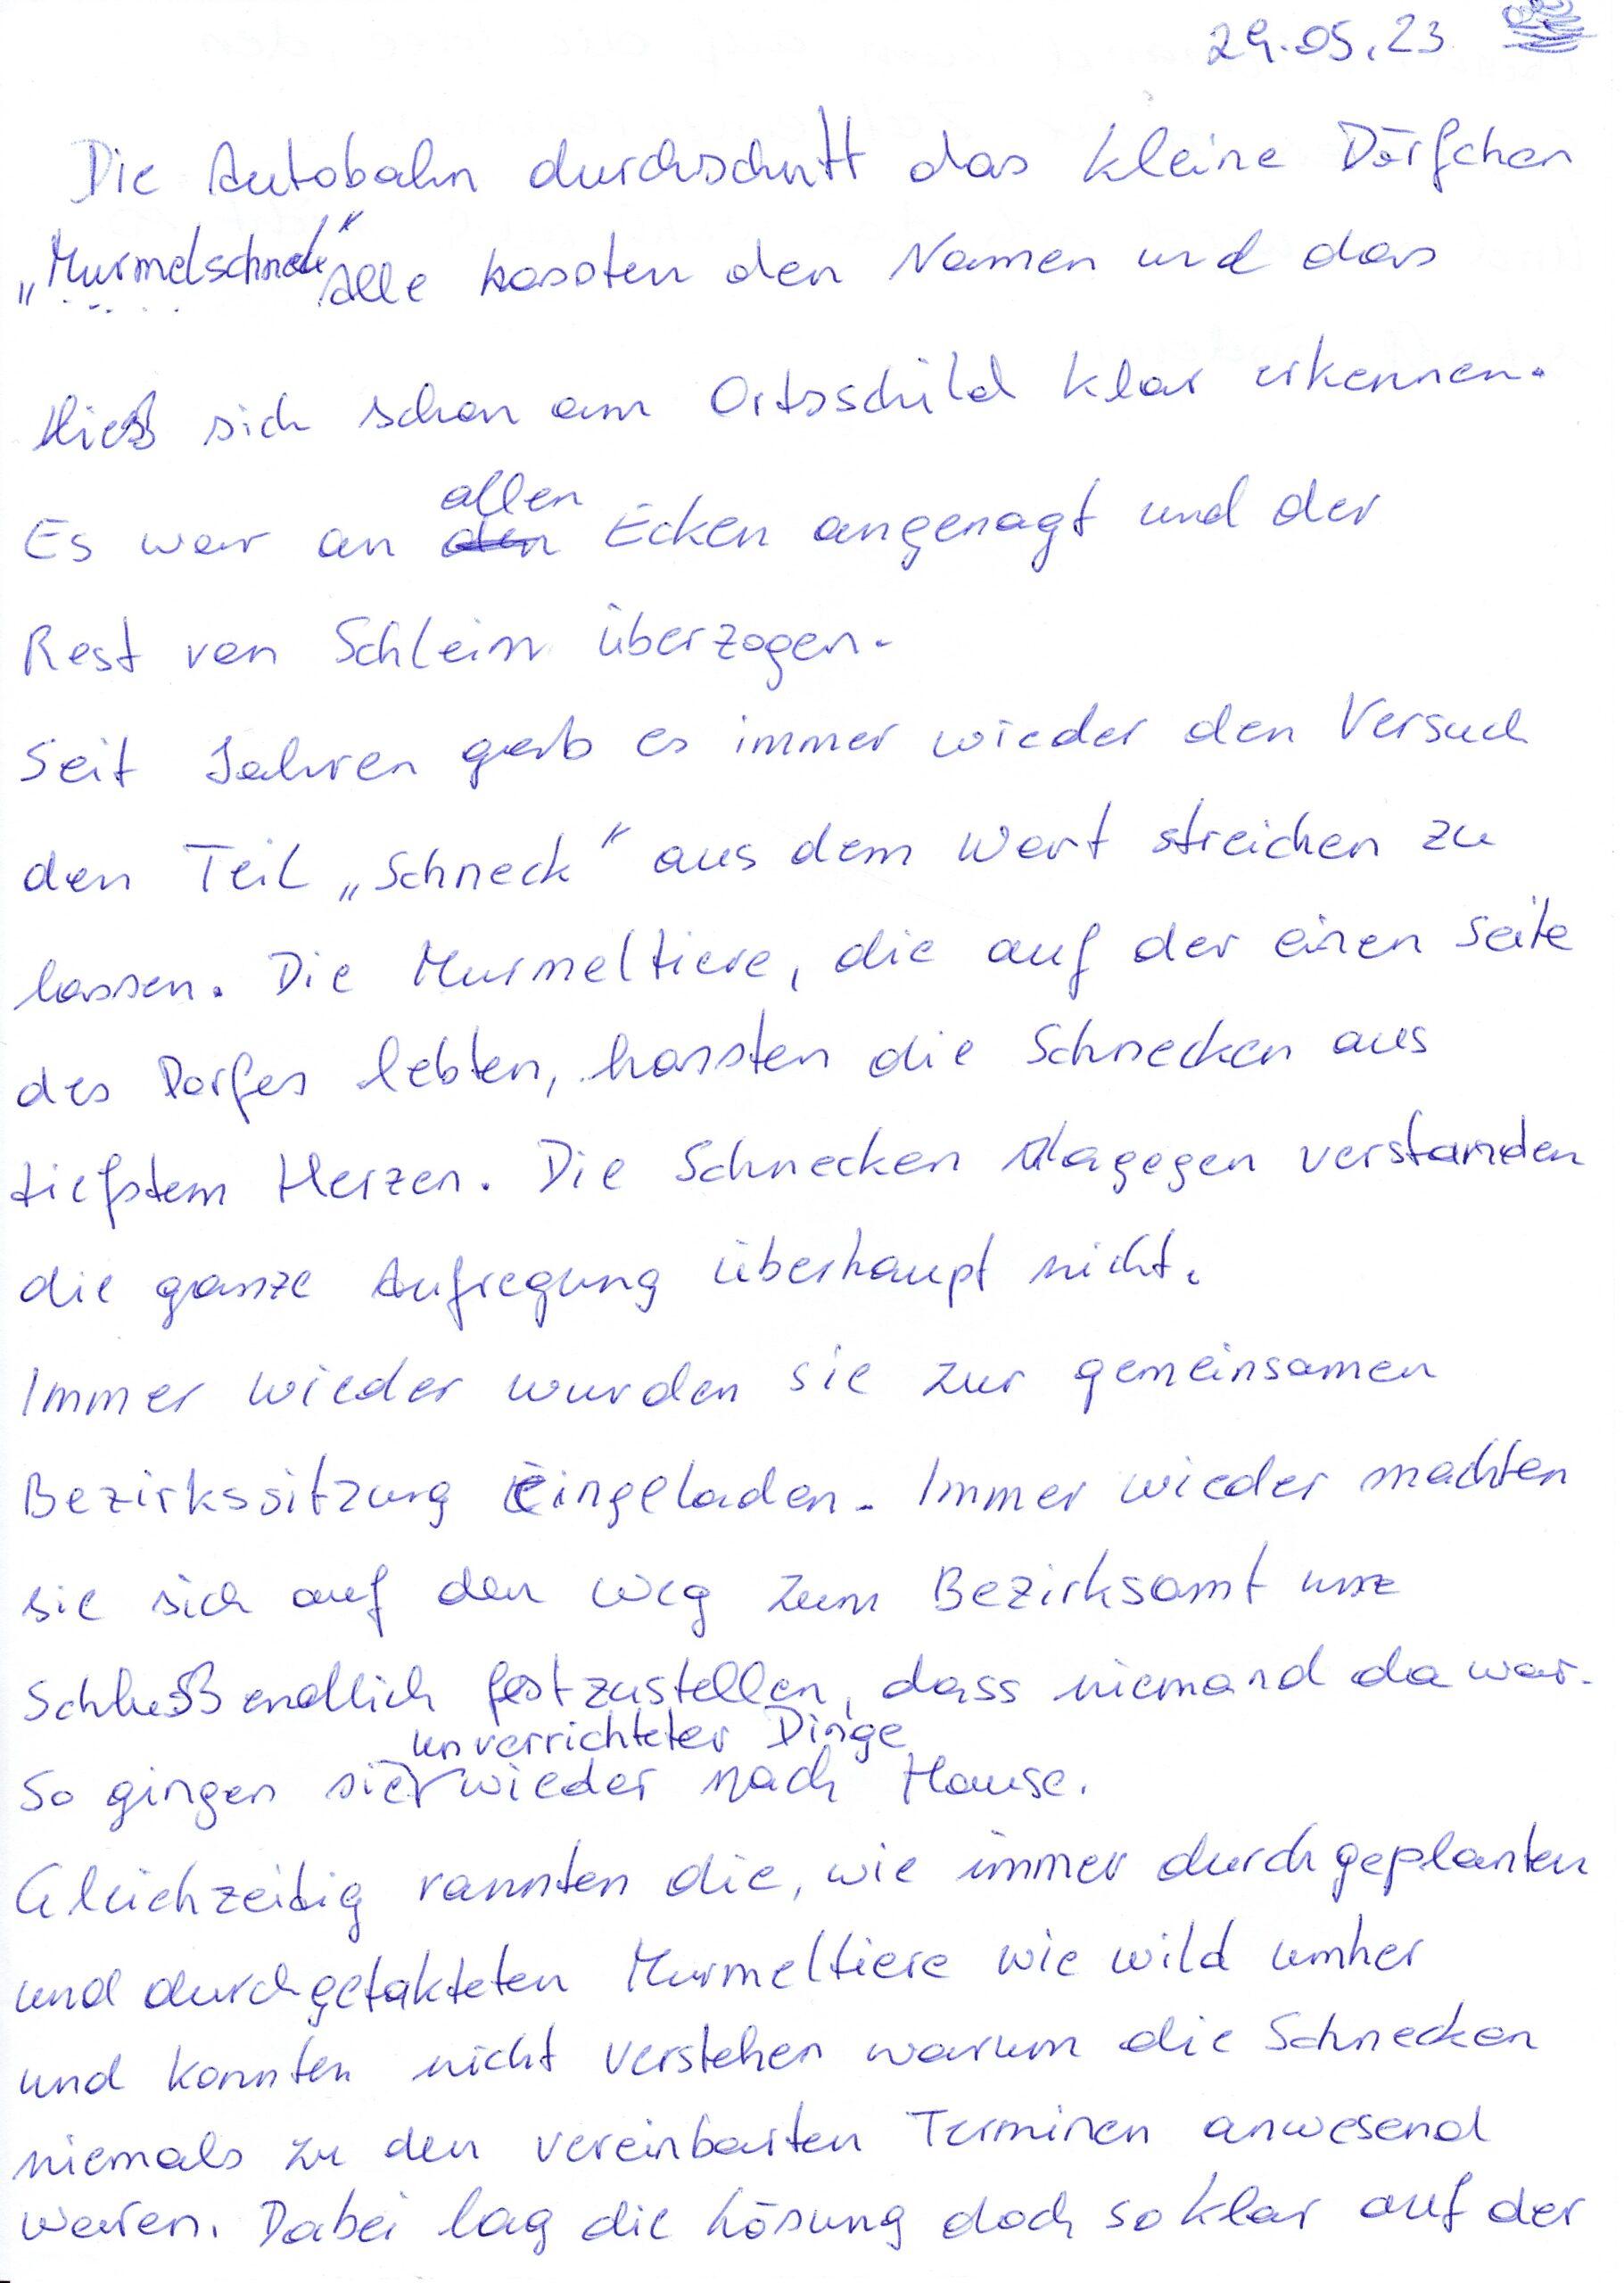 29.05.23
Die Autobahn durchschnitt das kleine Dörfchen
„Murmelschneck" Alle hassten den Namen und das
ließ sich schon am Ortsschild klar erkennen.
allen
Es war an den Ecken angenagt und der
Rest von Schleim überzogen.
Seit Jahren gab es immer wieder den Versuch
den Teil „Schneck" aus dem Wort streichen zu
lassen. Die Murmeltiere, die auf der einen Seite
des Dorfes lebten, hassten die Schnecken aus
tiefstem Herzen. Die Schnecken dagegen verstanden
die ganze Aufregung überhaupt nicht.
Immer wieder wurden sie zur gemeinsamen
Bezirkssitzung eingeladen. Immer wieder machten
sie sich auf den Weg zum Bezirksamt um
Schließendlich festzustellen, dass niemand da war.
unverrichteter Dinge
So gingen sie wieder nach Hause.
Gleichzeitig rannten die, wie immer durchgeplanten
und durchgetakteten Murmeltiere wie wild umher
und konnten nicht verstehen warum die Schnecken
niemals zu den vereinbarten Terminen anwesend
waren. Dabei lag die Lösung doch so klar auf der